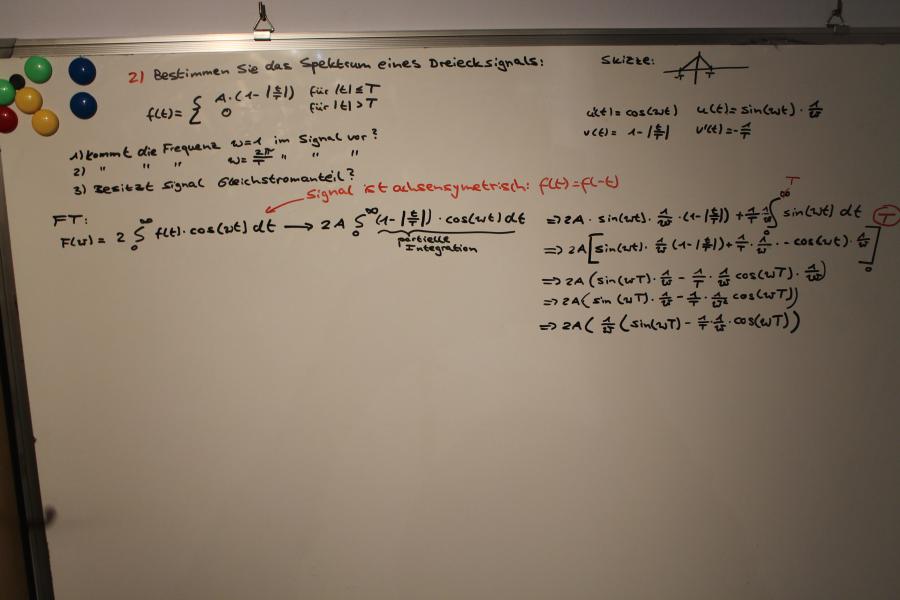 2) Bestimmen Sie das Spektrum eines Dreiecksignals:
Skizze:
-T T
f(t) = { A·(1-|t/T|) für |t| ≤ T
0 für |t| > T
u'(t) = cos(wt) u(t) = sin(wt) · 1/w
v(t) = 1-|t/T| v'(t) = -1/T
1) Kommt die Frequenz w=1 im Signal vor?
2) " " " w = 2π/T " " "
3) Besitzt Signal Gleichstromanteil?
Signal ist achsensymetrisch: f(t) = f(-t)
FT:
F(w) = 2 ∫₀^∞ f(t) · cos(wt) dt → 2A ∫₀^∞ (1-|t/T|) · cos(wt) dt
partielle
Integration
T
⇒ 2A · sin(wt) · 1/w · (1-|t/T|) + 1/T ∫₀^∞ sin(wt) dt
T
⇒ 2A [sin(wt) · 1/w (1-|t/T|) + 1/T · 1/w · - cos(wt) · 1/w]₀
⇒ 2A (sin(wT) · 1/w - 1/T · 1/w cos(wT) · 1/w)
⇒ 2A (sin(wT) · 1/w - 1/T · 1/w² cos(wT))
⇒ 2A ( 1/w (sin(wT) - 1/T · 1/w · cos(wT))